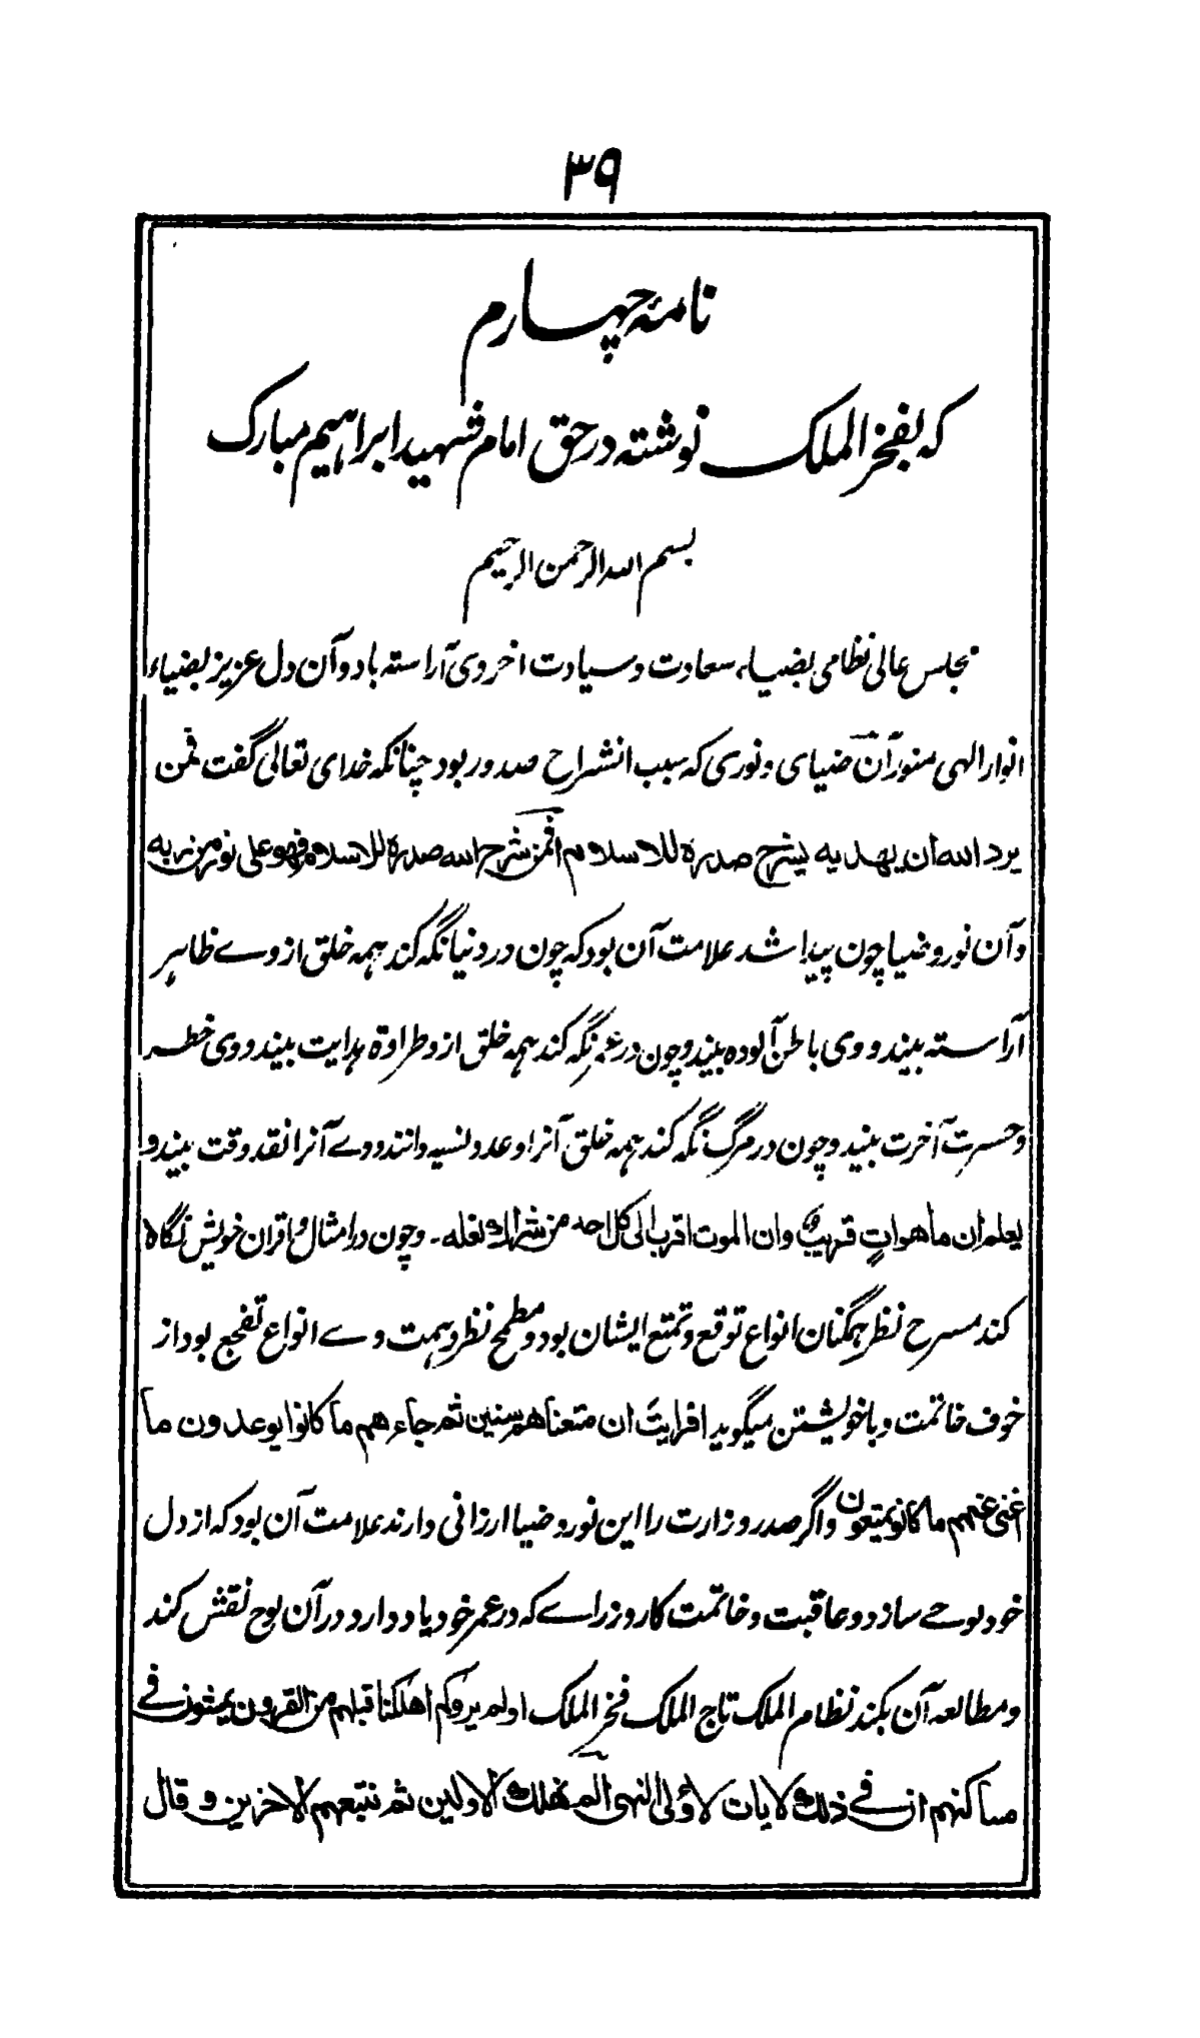 ۳۹
نامۀ چهارم
که بفخر الملک نوشته در حق امام شهید ابراهیم مبارک
بسم الله الرحمن الرحیم
مجلس عالی نظامی بضیاء سعادت و سیادت اخروی آراسته باد و آن دل عزیز بضیاء
انوار الهی منور آن ضیای و نوری که سبب انشراح صدور بود چنانکه خدای تعالی گفت فمن
یرد الله ان یهدیه یشرح صدره للاسلام افمن شرح الله صدره للاسلام فهو علی نور من ربه
و آن نور و ضیا چون پیدا شد علامت آن بود که چون در دنیا نگه کند همه خلق از وے ظاهر
آراسته بیند و وی باطن آلوده بیند و چون در عمر نگه کند همه خلق از و طراوة بدایت بیند و وی خطر
و حسرت آخرت بیند و چون در مرگ نگه کند همه خلق آنرا وعد و نسیه دانند و وے آنرا نقد وقت بیند و
یعلم ان ما هو اتٍ قریبٌ وان الموت اقرب الی کل احد من شراك نعله ـ و چون در امثال و اقران خویش نگاه
کند مسرح نظر همگنان انواع توقع و تمتع ایشان بود و مطمح نظر و همت وے انواع تفجع بود از
خوف خاتمت و با خویشتن میگوید افرایت ان متعناهم سنین ثم جاءهم ما کانوا یوعدون ما
اغنی عنهم ما کانوا یمتعون و اگر صدر وزارت را این نور و ضیا ارزانی دارند علامت آن بود که از دل
خود لوحے سازد و عاقبت و خاتمت کار وزراے که در عمر خود یاد دارد در آن لوح نقش کند
و مطالعه آن بکند نظام الملک تاج الملک فخر الملک اولم یروا کم اهلکنا قبلهم من القرون یمشون فے
مساکنهم ان فے ذلك لایات لاولی النهی الم نهلك الاولین ثم نتبعهم الاخرین و قال